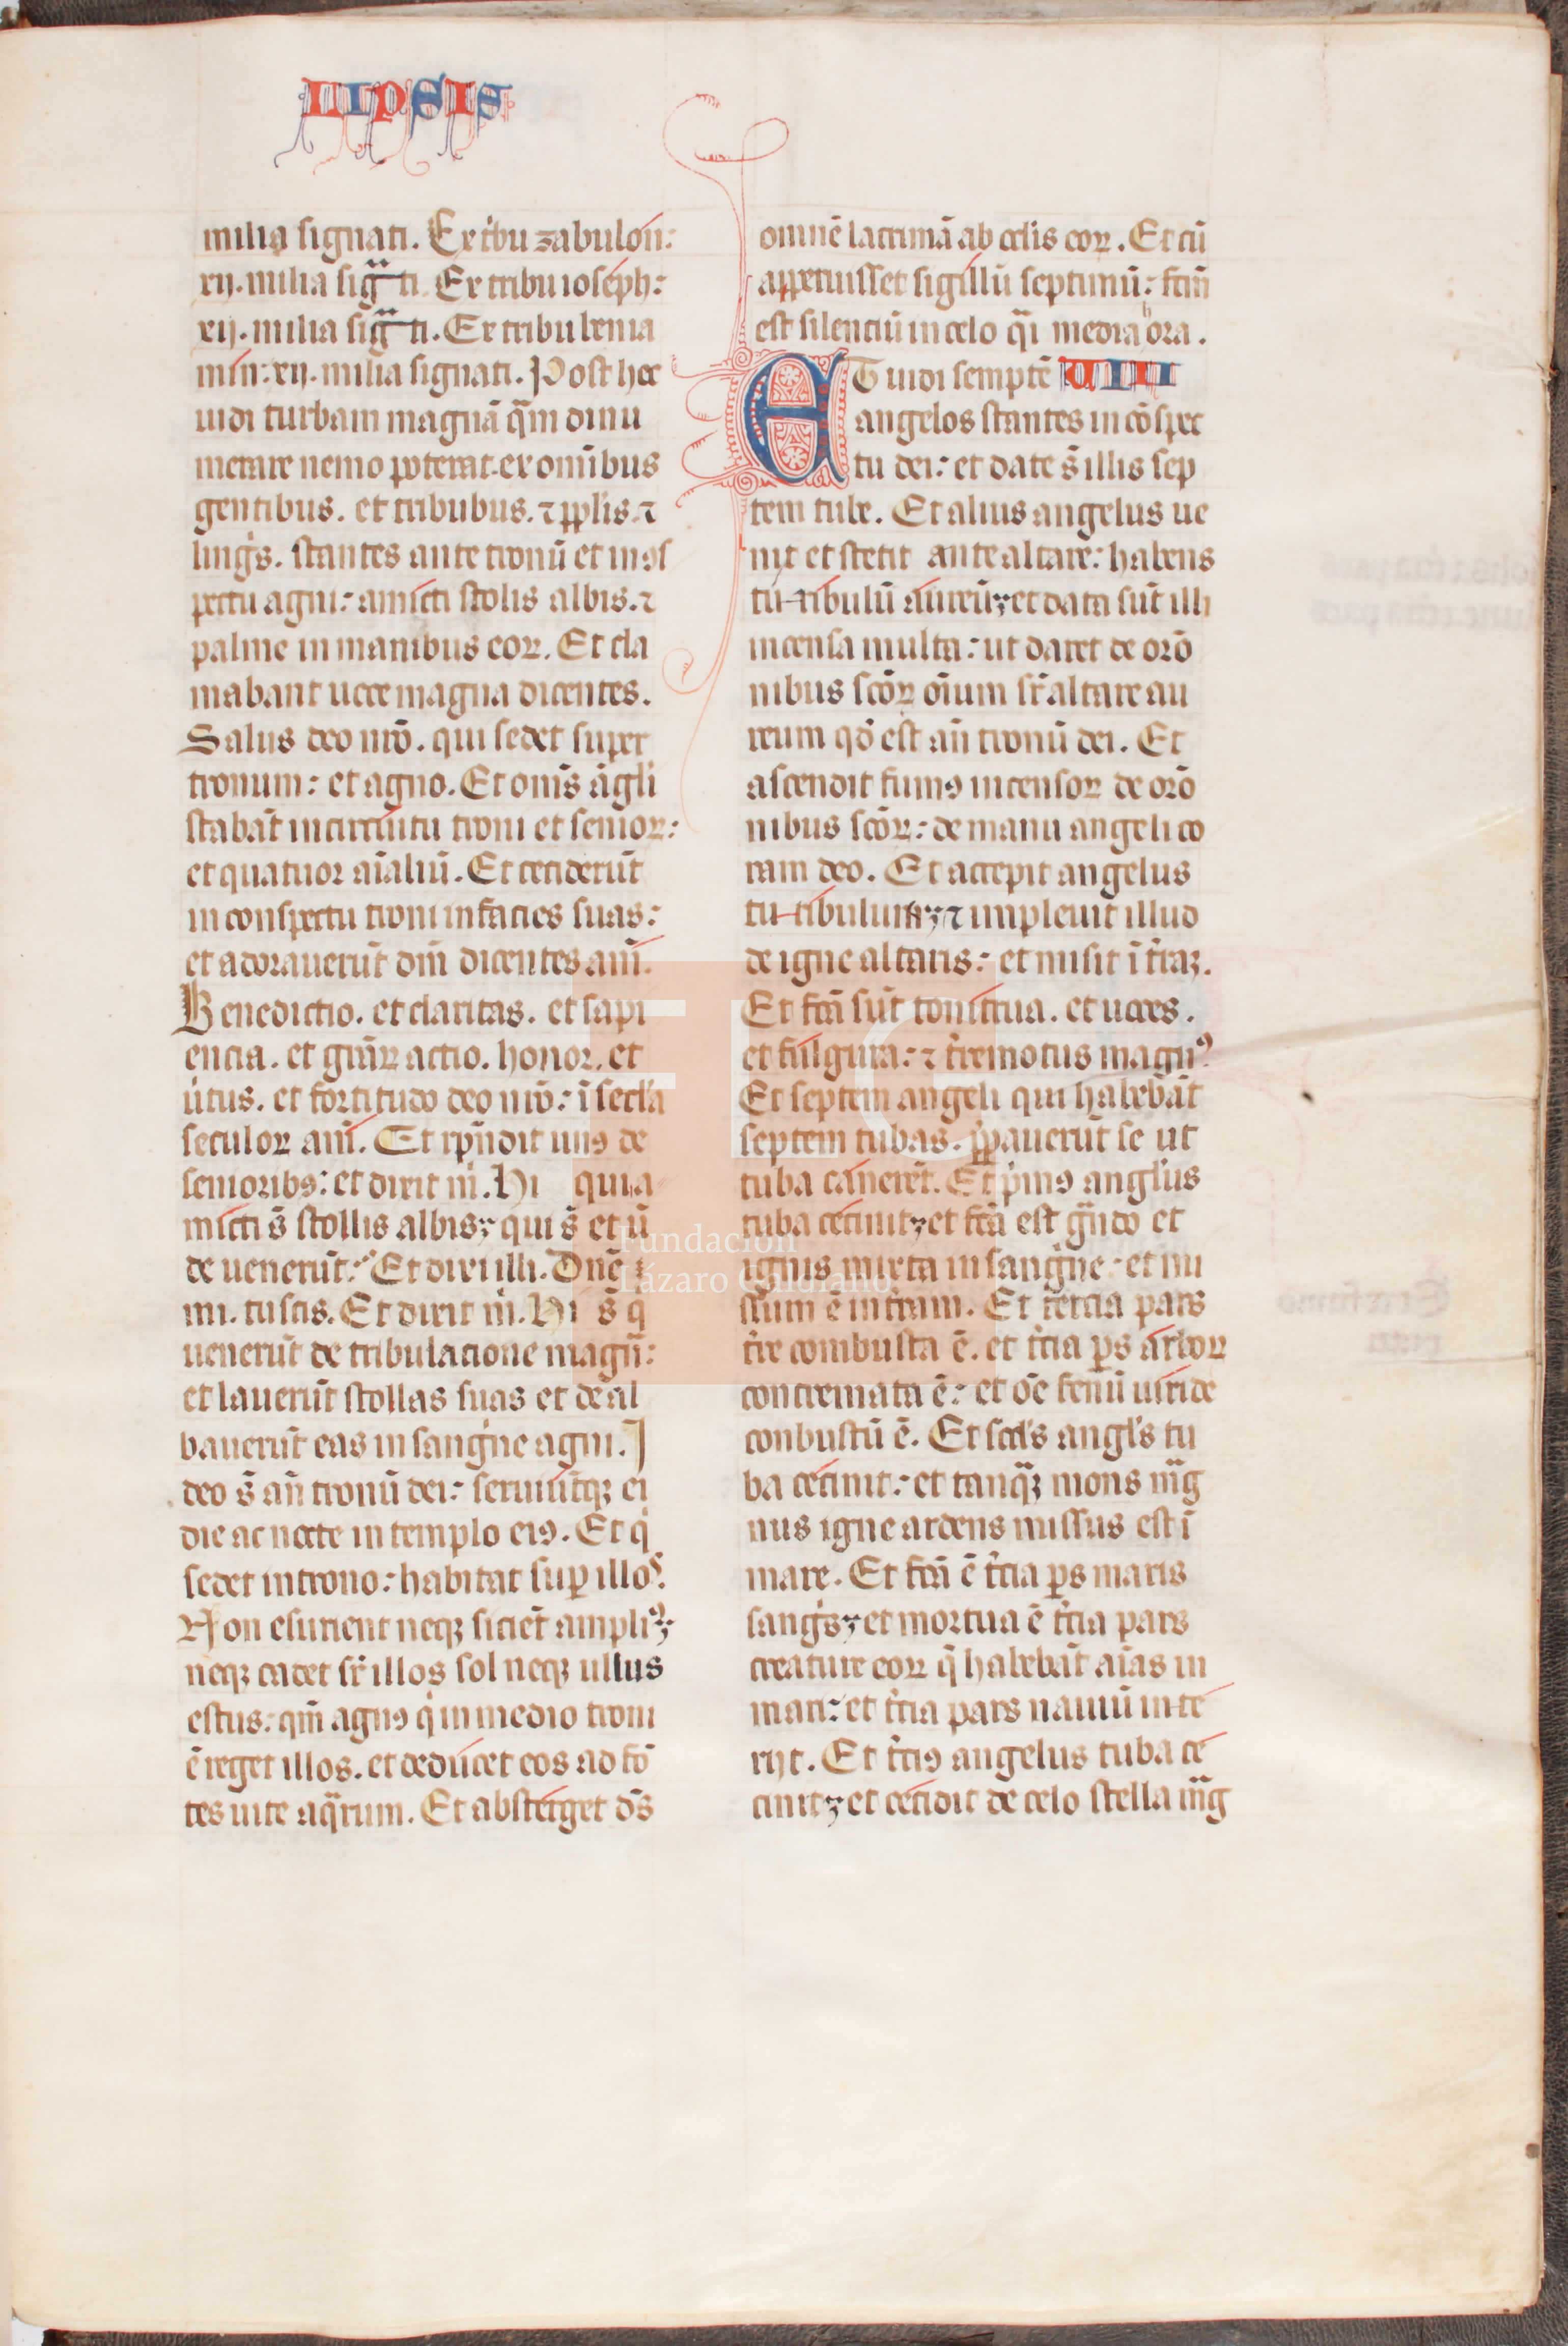 LIPSIS
milia signati. Ex tbu zabulon:
xij. milia sigᵃti. Ex tribu ioseph:
xij. milia sigᵃti. Ex tribu benia
min: xij. milia signati. Post hec
uidi turbam magnā qͣm dinu
merare nemo poterat. ex omībus
gentibus. et tribubus. ⁊ pplis. ⁊
lingˢ. stantes ante tronū et in ꝯs
pectu agni: amicti stolis albis. ⁊
palme in manibus eoꝝ. Et cla
mabant uoce magna dicentes.
Salus deo nrō. qui sedet super
tronum: et agno. Et omīs āgli
stabāt in circuitu troni et senioꝝ:
et quatuor aīaliū. Et ceciderūt
in conspectu troni in facies suas:
et adorauerūt dm̄ dicentes am̄.
Benedictio. et claritas. et sapi
encia. et gr̄aꝝ actio. honor. et
u̇tus. et fortitudo deo nrō: ī secl'a
seculoꝝ am̄. Et rn̄dit unꝯ de
senioribꝯ: et dixit m̄. Hi quia
micti s̄ stollis albis: qui s̄ et ū
de uenerūt: Et dixi illi. Dn̄e
mi. tu scis. Et dixit m̄. Hi s̄ q̇
uenerūt de tribulacione magͣ:
et lauerūt stollas suas et deal
bauerūt eas in sangⁱne agni. I
deo s̄ an̄ tronū dei: seruiūtqꝫ ei
die ac nocte in templo eiꝯ. Et q̇
sedet in trono: habitat suꝑ illoˢ.
Non esurient neqꝫ sicie͞t ampliꝰ:
neqꝫ cadet sr̄ illos sol neqꝫ ullus
estus: qm̄ agnꝯ q̇ in medio troni
ē reget illos. et deducet eos ad fō
tes uite aqͣrum. Et absterget ds̄
omnē lacrimā ab oclis eoꝝ. Et cū
apperuisset sigillū septimū: fcm̄
est silenciū in celo qͣi media hora.
ET uidi semptē VIII
angelos stantes in cōspec
tu dei: et date s̄ illis sep
tem tube. Et alius angelus ue
nit et stetit ante altare: habens
turibulū aureū: et data sūt illi
incensa multa: ut daret de orō
nibus scōꝝ oīum sr̄ altare au
reum qd̄ est an̄ tronū dei. Et
ascendit fumꝯ incensoꝝ de orō
nibus scōꝝ: de manu angeli co
ram deo. Et accepit angelus
turibulum: ⁊ impleuit illud
de igne altaris: et misit ī t̄raꝫ.
Et fcā sūt tonitrua. et uoces.
et fulgura: ⁊ t̄remotus magnꝰ
Et septem angeli qui habebāt
septem tubas. p̄pauerūt se ut
tuba canerēt. Et pⁱmꝯ angl'us
tuba cecinit: et fcā est gͣndo et
ignis mixta in sangⁱne: et mi
ssum ē in t̄ram. Et tercia pars
t̄re combusta ē. et t̄cia ꝑs arboꝝ
concremata ē: et oē fenū uiride
conbustū ē. Et scd's angl's tu
ba cecinit: et tanqͣꝫ mons mͣg
nus igne ardens missus est ī
mare. Et fcā ē t̄cia ꝑs maris
sangˢ: et mortua ē t̄cia pars
creature eoꝝ q̄ habebāt aīas in
mari: et t̄cia pars nauiū inte
rijt. Et t̄ciꝯ angelus tuba ce
cinit: et cecidit de celo stella mͣg
Fundación
Lázaro Galdiano